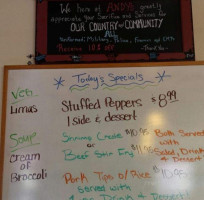 We here at ANDYS greatly
appreciate your Sacrifice and Service for
OUR COUNTRY or COMMUNITY
All
Military, Police,
Receive 10% off
Thank You
Today's Specials
Veg
Limas
Stuffed Peppers $8.99
1 side & dessert
Soup
Cream of
Broccoli
Shrimp Creole $10.95
or
Beef Stir Fry $11.95
Both Served
with
Salad, Drink
& Dessert
Pork Tips w/ Rice $10.95
Served with
Drink & Dessert